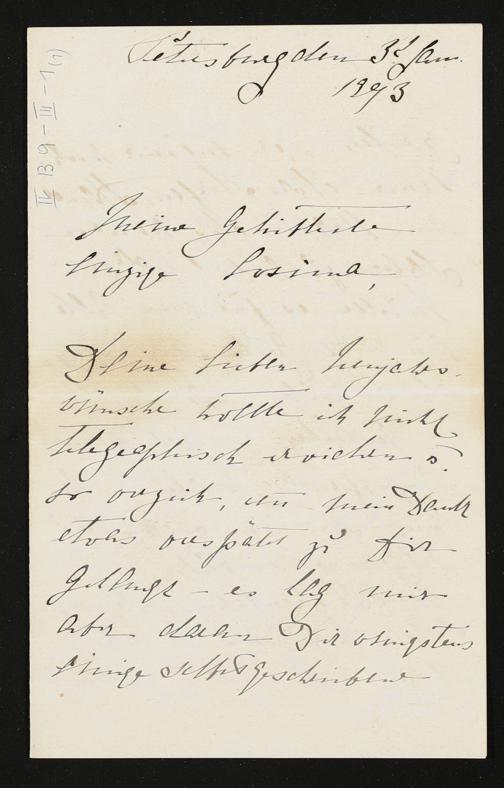 Petersburg den 3t Jan.
1893
IV B 9 – III – 1 (1)
Meine Geliebteste
Einzige Cosima,
Deine lieben Neujahrs-
wünsche wollte ich nicht
telegraphisch erwidern u.
so verzeih, wenn mein Dank
etwas verspätet zu Dir
gelangt – es lag mir
aber daran Dir wenigstens
einige selbstgeschriebene